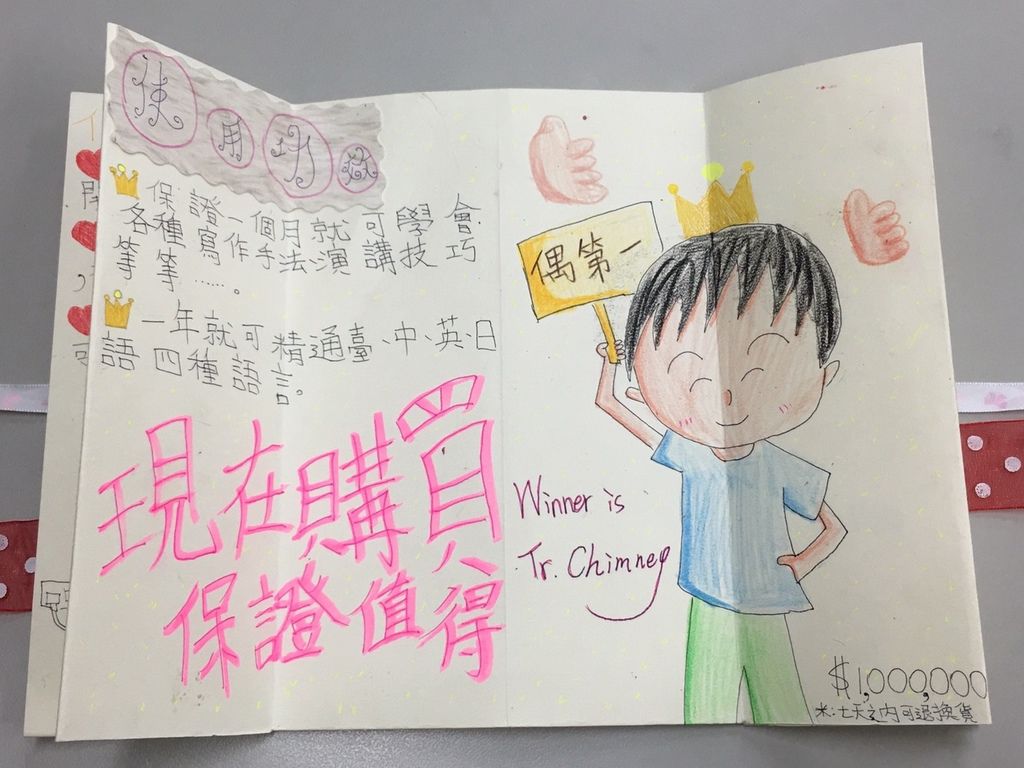 使用功效
保證一個月就可學會
各種寫作手法演講技巧
等等……。
一年就可精通臺、中、英、日
語四種語言。
現在購買
保證值得
偶第一
Winner is
Tr. Chimney
$1,000,000
米:七天之內可退換貨